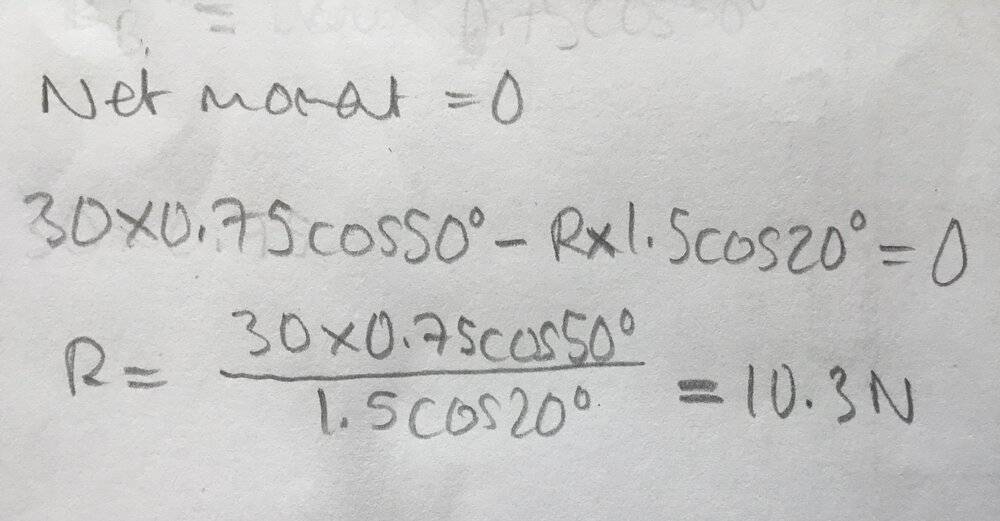 Net moment = 0
30×0.75cos50° − R×1.5cos20° = 0
R = 30×0.75cos50° / 1.5cos20° = 10.3N